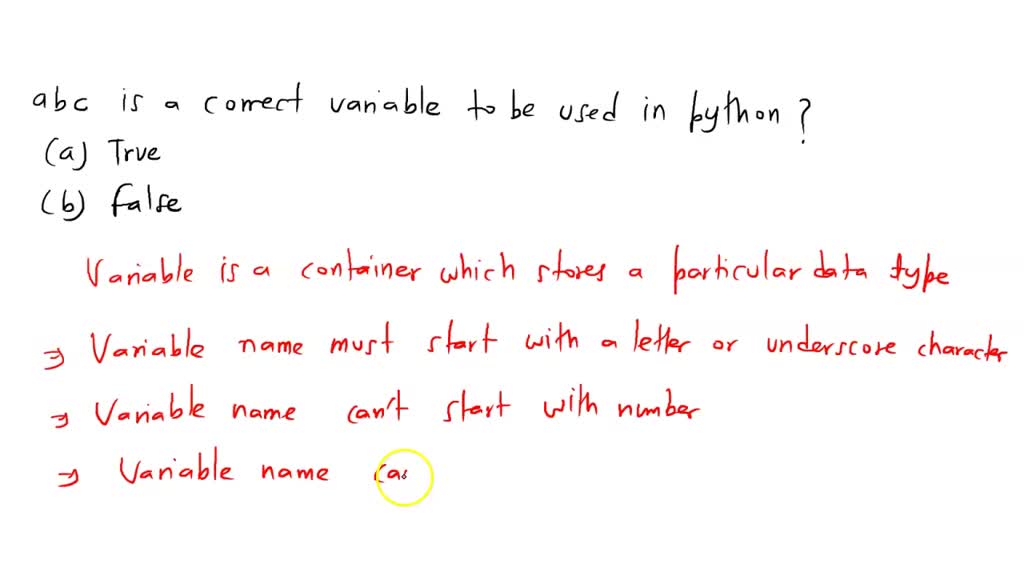 abc is a correct variable to be used in python?
(a) True
(b) false
Variable is a container which stores a particular data type
⇒ Variable name must start with a letter or underscore character
⇒ Variable name can't start with number
⇒ Variable name